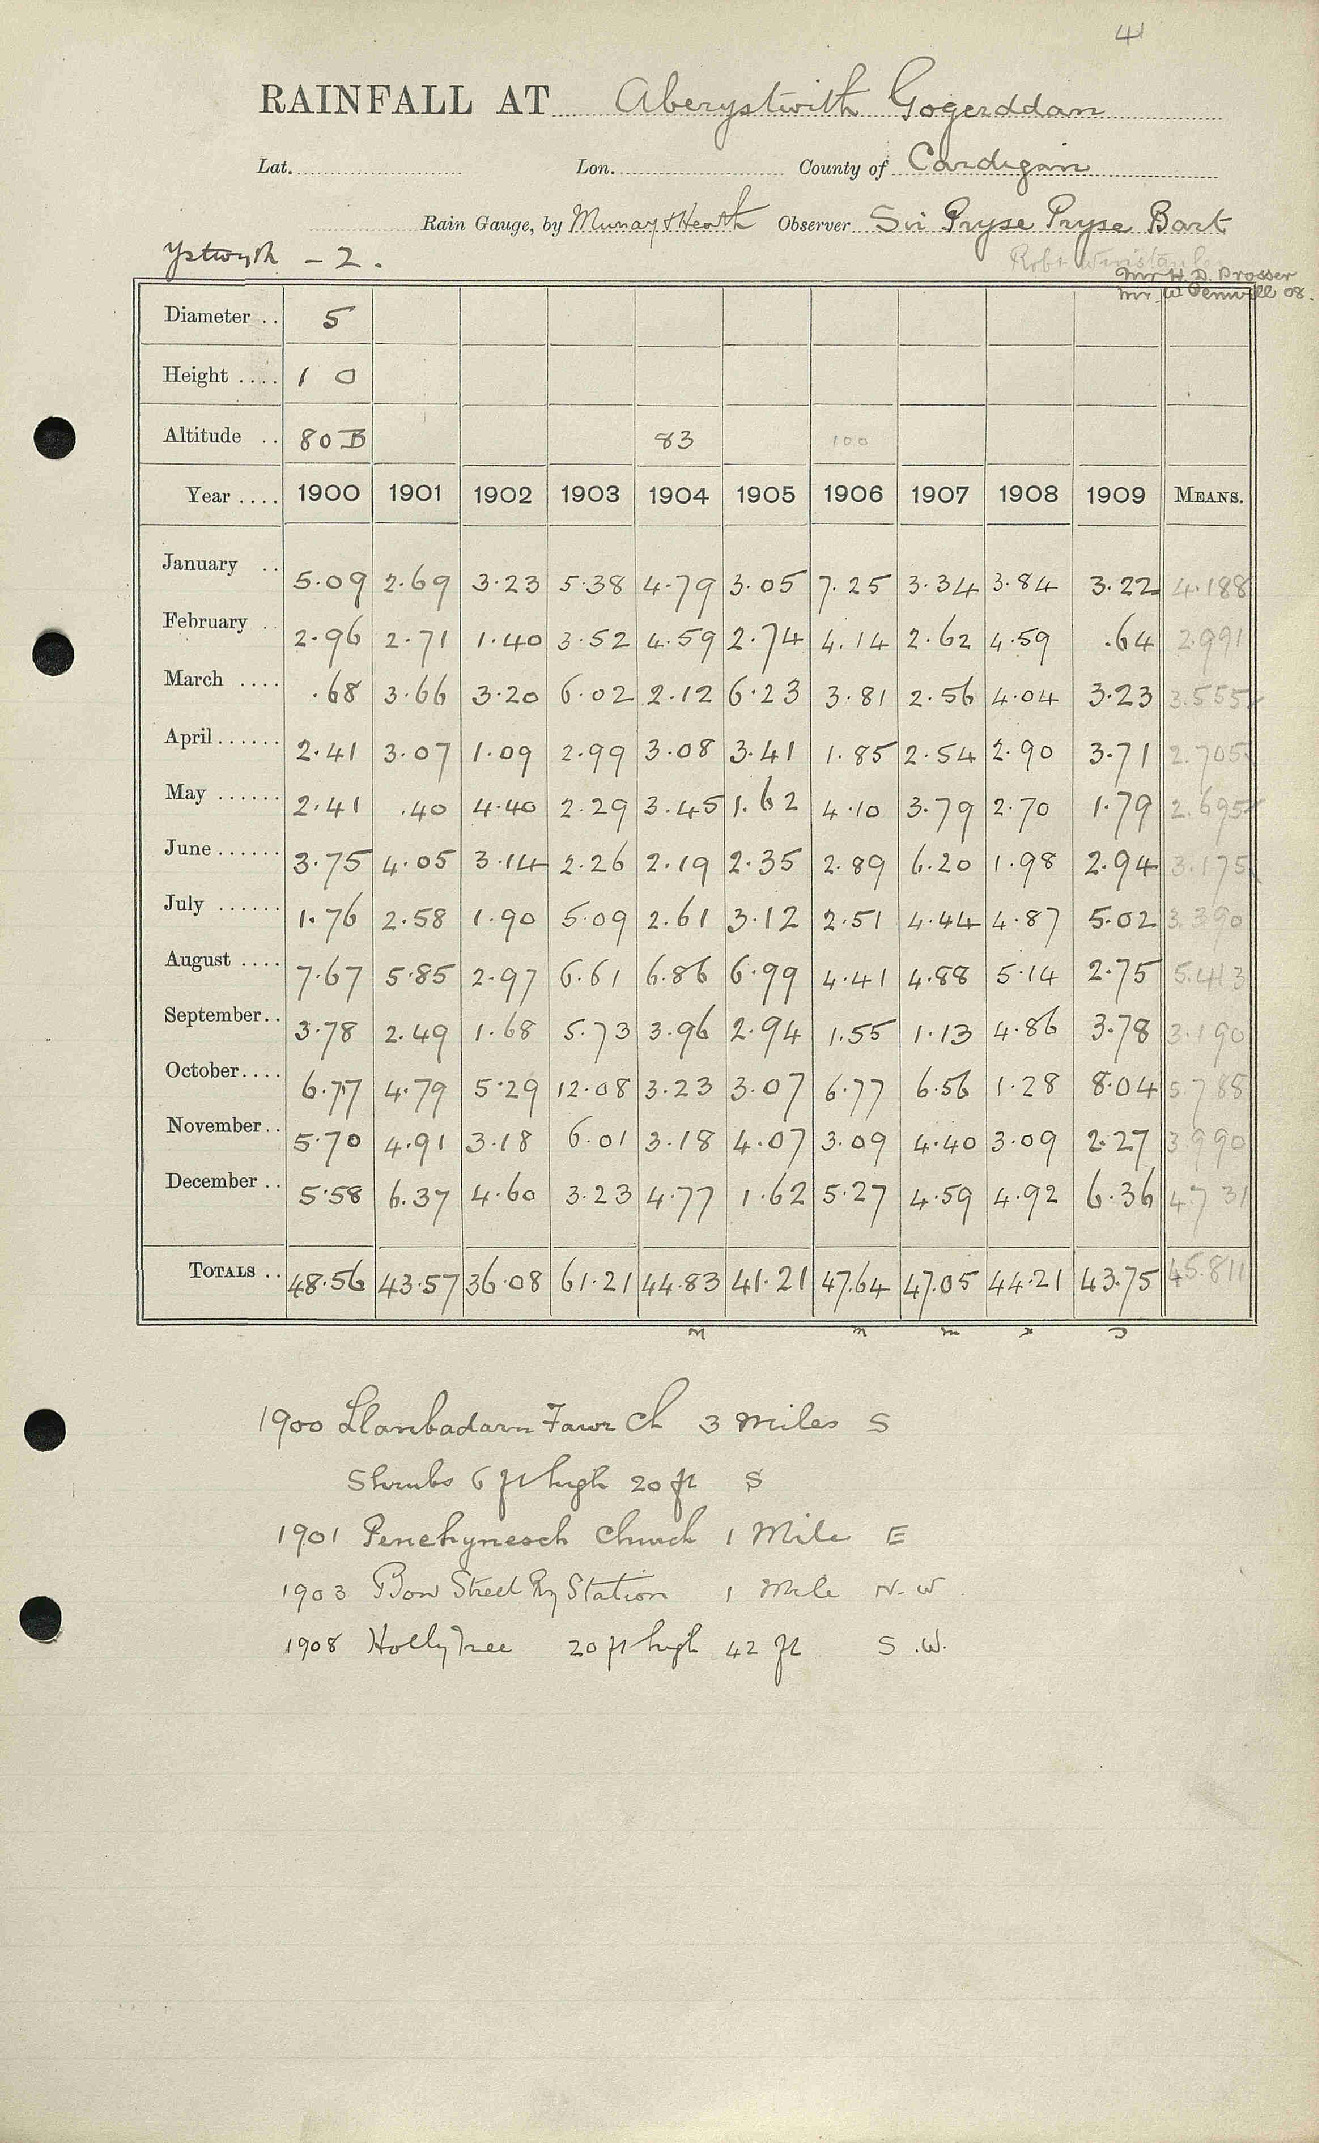 41
RAINFALL AT Aberystwith Gogerddan
Lat. Lon. County of Cardigan
Rain Gauge, by Murray & Heath Observer Sir Pryse Pryse Bart
Ystwyth - 2. Robt
Mr H. D. Prosser
Mr W 08.
Diameter .. 5
Height .... 1 0
Altitude .. 80 B 83 100
Year .... 1900 1901 1902 1903 1904 1905 1906 1907 1908 1909 MEANS.
January .. 5.09 2.69 3.23 5.38 4.79 3.05 7.25 3.34 3.84 3.22 4.188
February .. 2.96 2.71 1.40 3.52 4.59 2.74 4.14 2.62 4.59 .64 2.991
March .... .68 3.66 3.20 6.02 2.12 6.23 3.81 2.56 4.04 3.23 3.555
April...... 2.41 3.07 1.09 2.99 3.08 3.41 1.85 2.54 2.90 3.71 2.705
May ...... 2.41 .40 4.40 2.29 3.45 1.62 4.10 3.79 2.70 1.79 2.695
June...... 3.75 4.05 3.14 2.26 2.19 2.35 2.89 6.20 1.98 2.94 3.175
July ...... 1.76 2.58 1.90 5.09 2.61 3.12 2.51 4.44 4.87 5.02 3.390
August .... 7.67 5.85 2.97 6.61 6.86 6.99 4.41 4.88 5.14 2.75 5.413
September.. 3.78 2.49 1.68 5.73 3.96 2.94 1.55 1.13 4.86 3.78 3.190
October.... 6.77 4.79 5.29 12.08 3.23 3.07 6.77 6.56 1.28 8.04 5.788
November.. 5.70 4.91 3.18 6.01 3.18 4.07 3.09 4.40 3.09 2.27 3.990
December .. 5.58 6.37 4.60 3.23 4.77 1.62 5.27 4.59 4.92 6.36 4.731
TOTALS .. 48.56 43.57 36.08 61.21 44.83 41.21 47.64 47.05 44.21 43.75 45.811
1900 Llanbadarn Fawr Ch 3 Miles S
Shrubs 6 ft high 20 ft S
1901 Penrhyncoch Church 1 Mile E
1903 Bow Street Ry Station 1 Mile N.W
1908 Holly Tree 20 ft high 42 ft S.W.